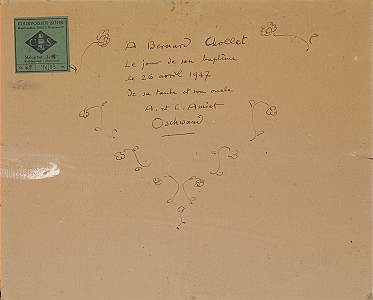 A Bernard Chollet
Le jour de son baptême
le 26 avril 1947
de sa tante et son oncle
A. et C. Amiet
Oschwand